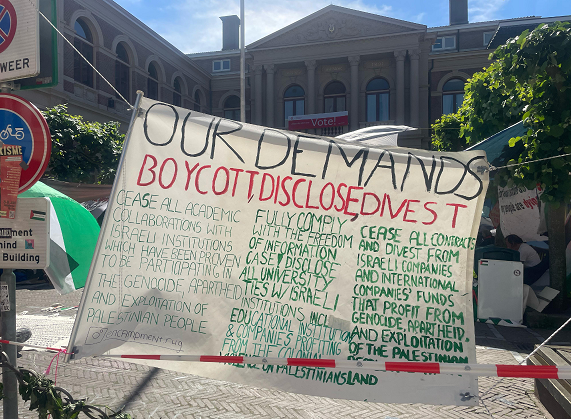 OUR DEMANDS
BOYCOTT, DISCLOSE, DIVEST
CEASE ALL ACADEMIC
COLLABORATIONS WITH
ISRAELI INSTITUTIONS
WHICH HAVE BEEN PROVEN
TO BE PARTICIPATING IN
THE GENOCIDE, APARTHEID
AND EXPLOITATION OF
PALESTINIAN PEOPLE
FULLY COMPLY
WITH THE FREEDOM
OF INFORMATION
CASE! DISCLOSE
ALL UNIVERSITY
TIES W/ ISRAELI
INSTITUTIONS, INCL
EDUCATIONAL
& COMPANIES PROFITING
FROM THE
VIOLENCE ON PALESTINIANS LAND
CEASE ALL CONTRACTS
AND DIVEST FROM
ISRAELI COMPANIES
AND INTERNATIONAL
COMPANIES' FUNDS
THAT PROFIT FROM
GENOCIDE, APARTHEID
AND EXPLOITATION
OF THE PALESTINIAN
Vote!
WEER
Building